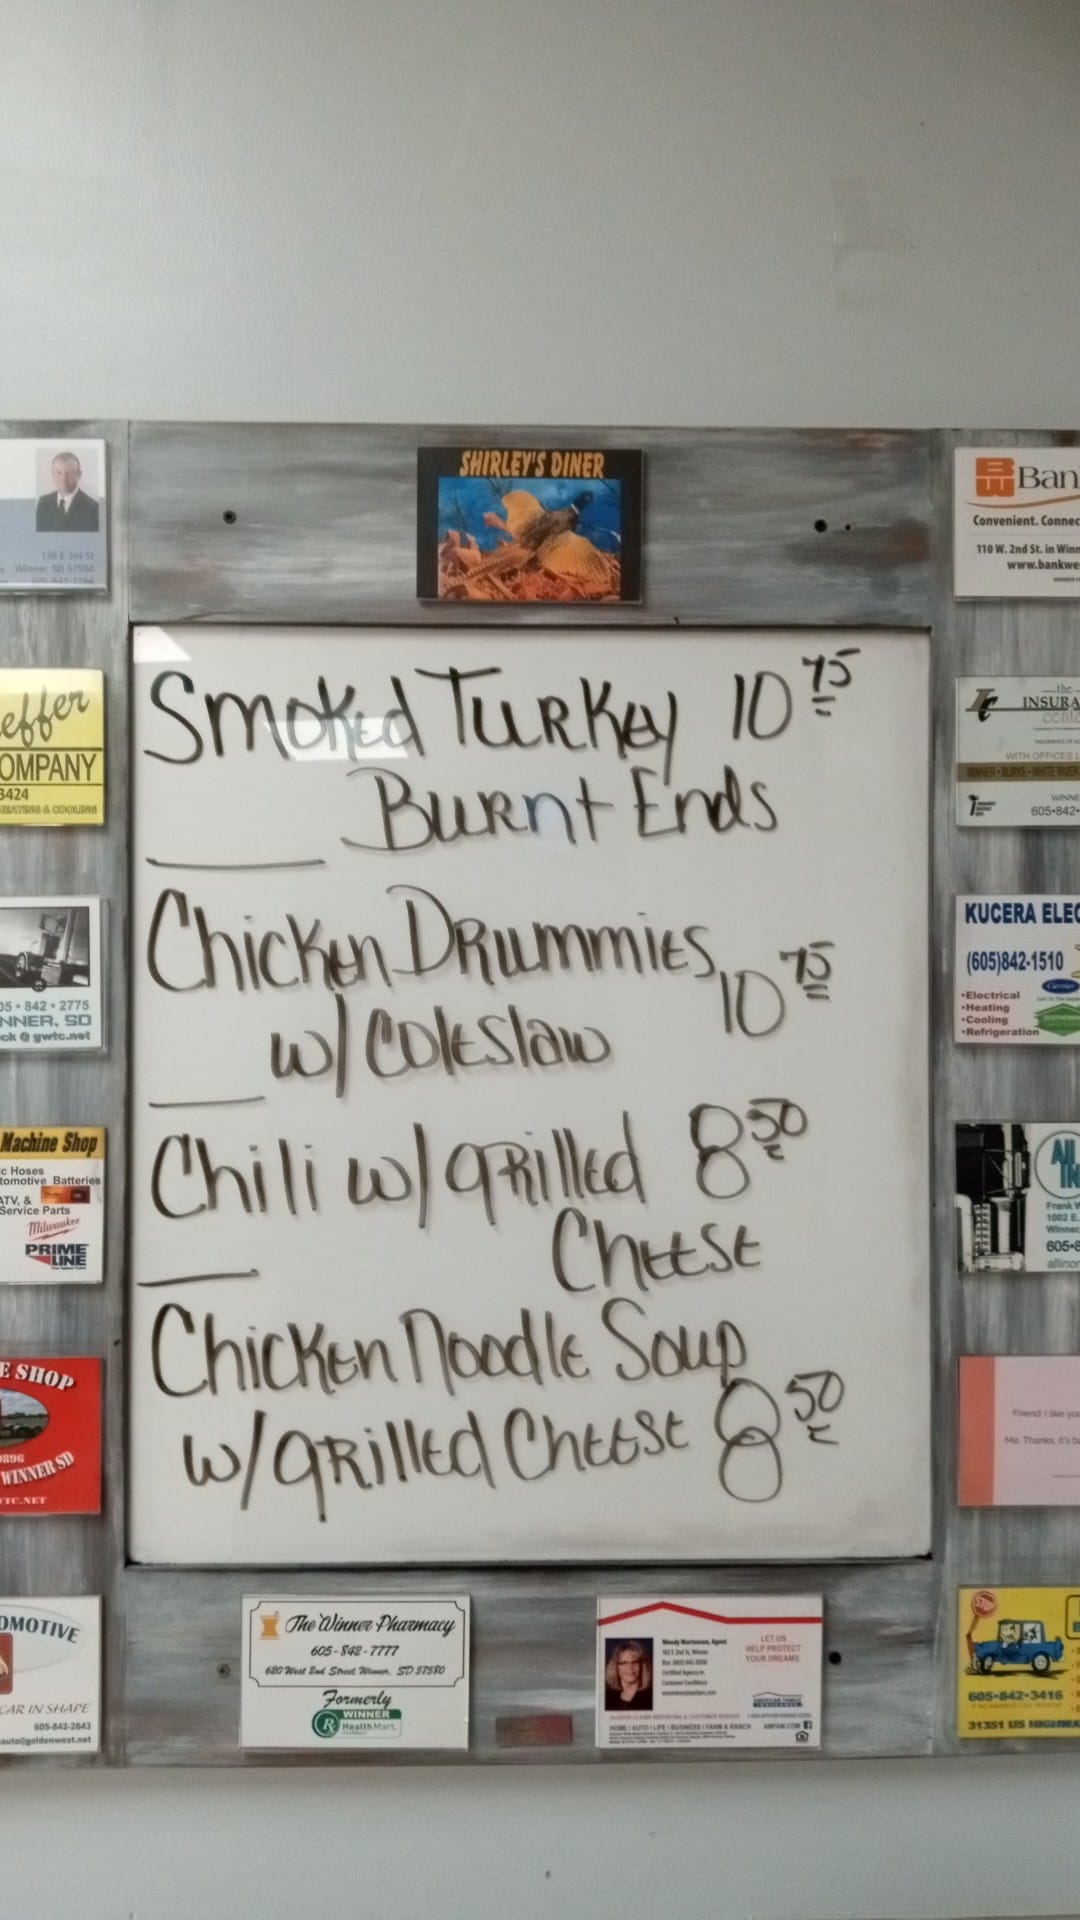 SHIRLEY'S DINER
Smoked Turkey 10 75
Burnt Ends
Chicken Drummies
10 75
w/ Coleslaw
Chili w/ grilled 8 50
Cheese
Chicken Noodle Soup
w/ grilled Cheese 8 50
138 E 3rd St
Winner, SD 57580
605-842-1266
effer
OMPANY
3424
EATING & COOLING
05 • 842 • 2775
NNER, SD
ck @ gwtc.net
Machine Shop
ic Hoses
tomotive Batteries
ATV, &
Service Parts
Milwaukee
PRIME
LINE
E SHOP
0896
WINNER SD
TC.NET
OMOTIVE
CAR IN SHAPE
605-842-2643
auto@goldenwest.net
The Winner Pharmacy
605-842-7777
620 West 2nd Street Winner, SD 57580
Formerly
WINNER
Health Mart
Wendy Mortenson, Agent
Certified Agency in
Customer Excellence
LET US
HELP PROTECT
YOUR DREAMS.
AMERICAN FAMILY
INSURANCE
HOME | AUTO | LIFE | BUSINESS | FARM & RANCH AMFAM.COM
BW Ban
Convenient. Connec
110 W. 2nd St. in Winn
www.bankwe
the
INSURA
cente
WITH OFFICES
WINNER • BURKE • WHITE RIVER
WINNE
605•842•
KUCERA ELEC
(605)842-1510
Carrier
•Electrical
•Heating
•Cooling
•Refrigeration
All
IN
Frank W
1002 E.
Winner,
605•8
allinor
Friend: I like you
Me: Thanks, it's ba
STOP
605•842•3416
31351 US HIGHWA